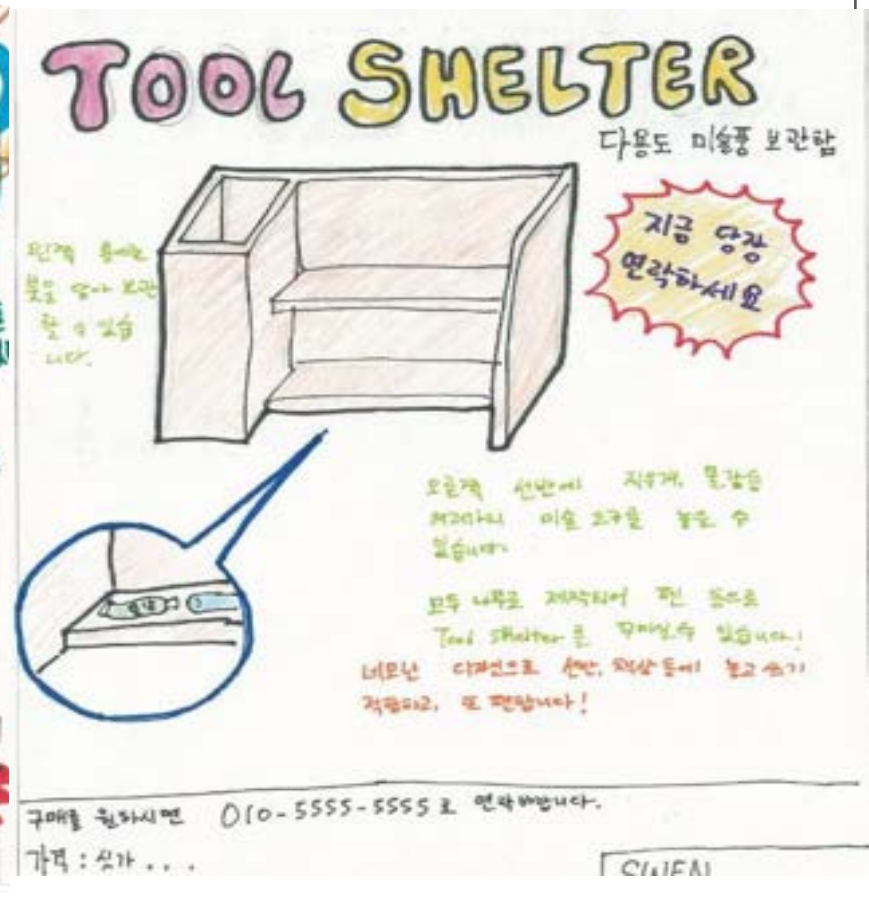 TOOL SHELTER
다용도 미술품 보관함
지금 당장
연락하세요
왼쪽 통에는
붓을 담아 보관
할 수 있습
니다.
오른쪽 선반에 지우개, 물감등
여러가지 미술 도구를 놓을 수
있습니다.
모두 나무로 제작되어 펜 등으로
Tool Shelter를 꾸미실수 있습니다!
네모난 디자인으로 선반, 책상 등에 놓고 쓰기
적합하고, 또 편합니다!
구매를 원하시면 010-5555-5555로 연락바랍니다.
가격 : 싯가 ...
SWEN